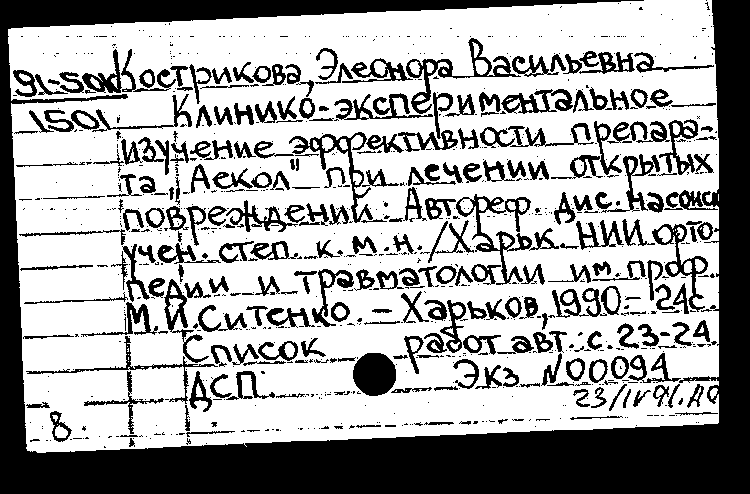 91-50к Кострикова, Элеонора Васильевна
1501. Клинико-экспериментальное
изучение эффективности препара-
та „Аекол" при лечении открытых
повреждений: Автореф. дис. на соиск
учен. степ. к.м.н. /Харьк. НИИ орто-
педии и травматологии им. проф.
М.И.Ситенко. – Харьков, 1990.– 24с.
Список работ авт.: с.23-24.
ДСП. Экз N00094
23/IV 91.
8.